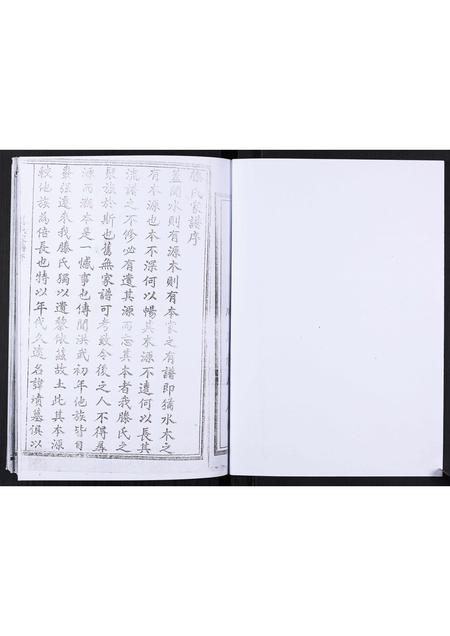 滕氏家譜序
蓋聞水則有源木則有本家之有譜即猶水木之
有本源也本不深何以暢其末源不遠何以長其
流譜之不修必有遺其源而忘其本者我滕氏之
聚族於斯也舊無家譜可考致令後之人不得尋
源而溯本是一憾事也傳聞洪武初年他族皆自
發强遷來我滕氏獨以遺黎依茲故土此其本源
較他族為倍長也特以年代久遠名諱墳墓俱以